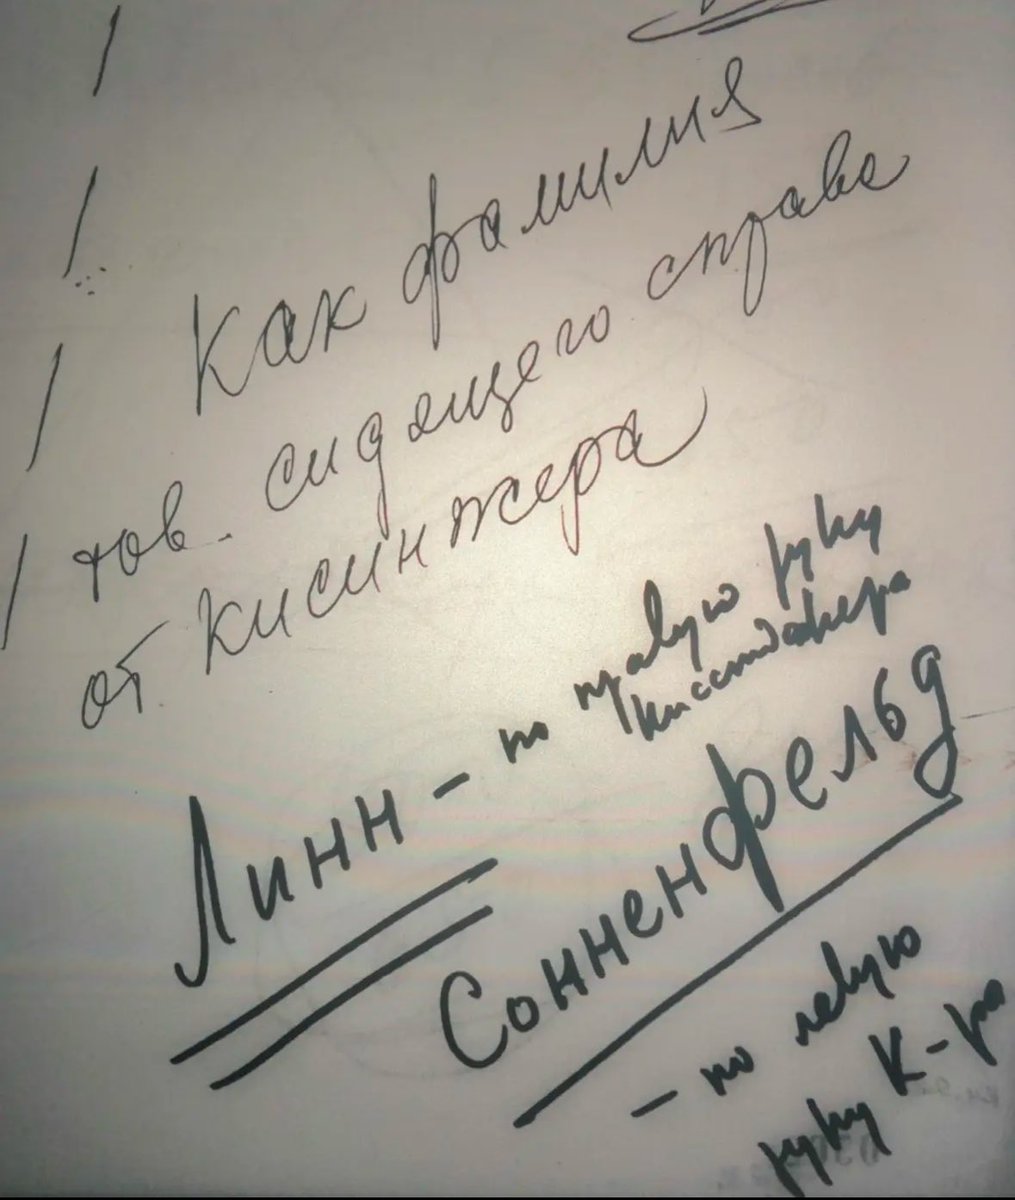 Как фамилия
тов. сидящего справа
от кисинжера
Линн - по правую руку
Киссинджера
Сонненфельд
- по левую
руку К-ра